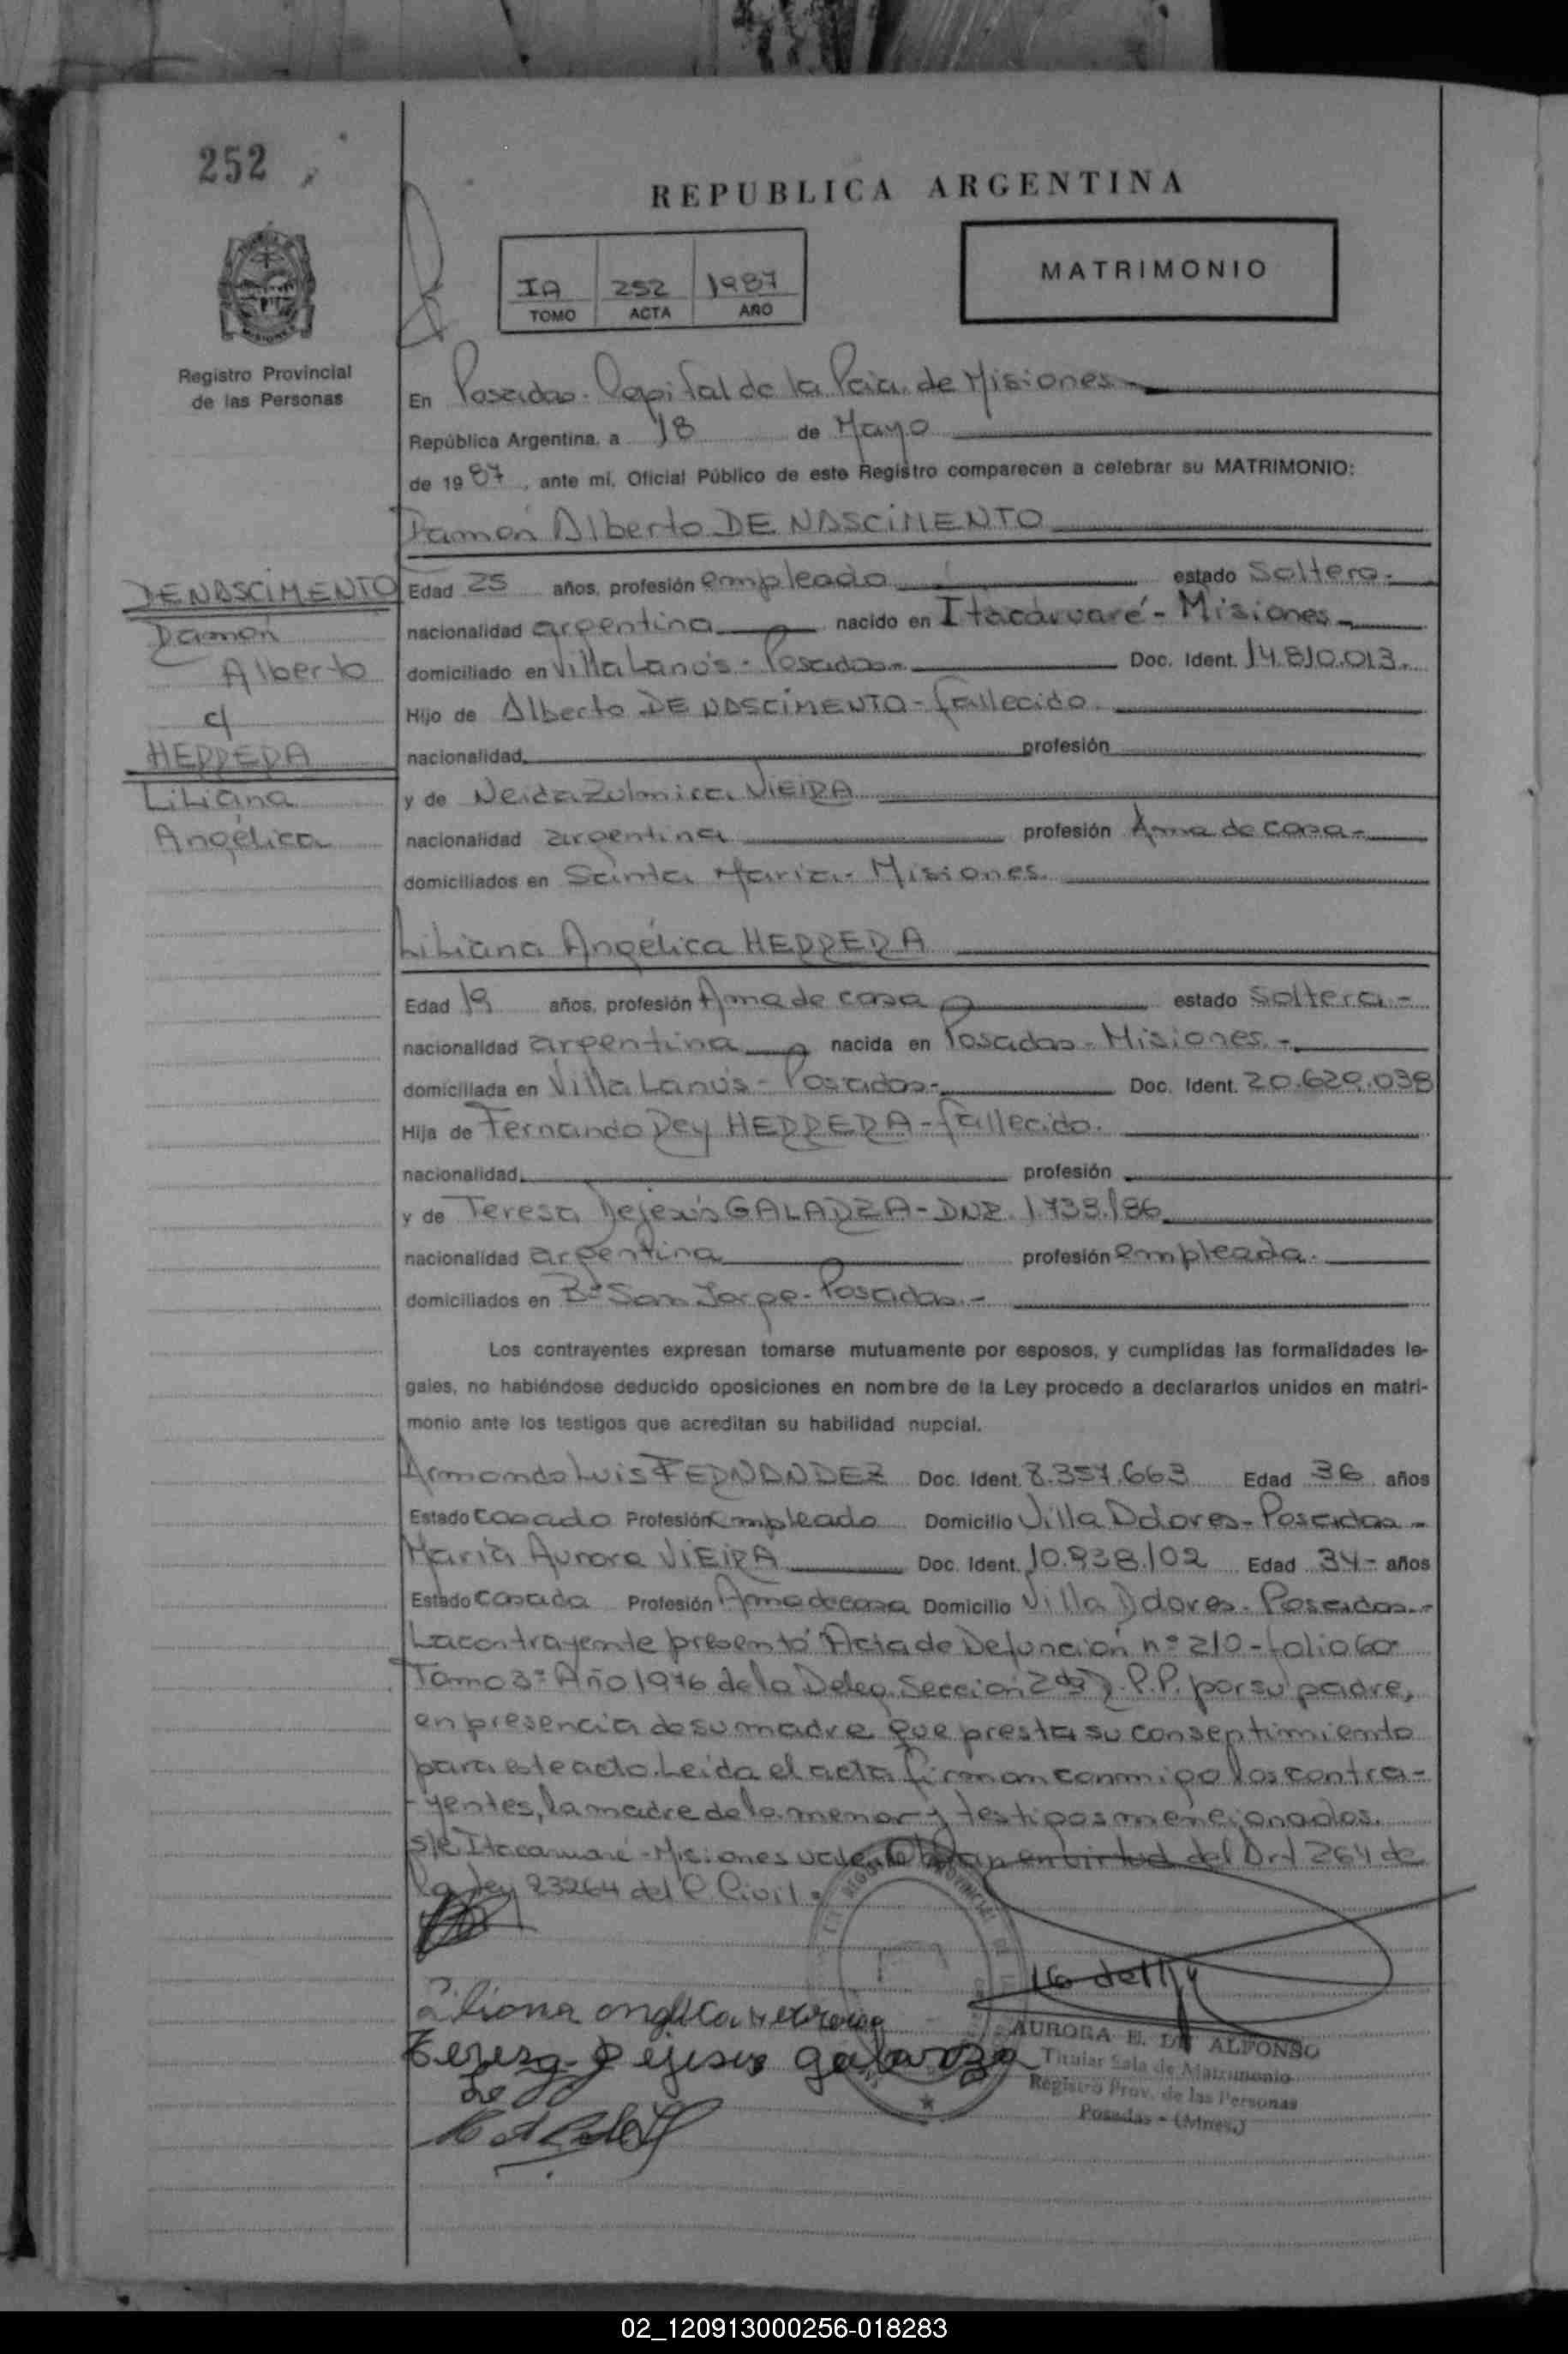 252
REPUBLICA ARGENTINA
MATRIMONIO
IA 252 1987
TOMO ACTA AÑO
Registro Provincial
de las Personas
En Posadas. Capital de la Pcia. de Misiones
República Argentina, a 18 de Mayo
de 1987, ante mí, Oficial Público de este Registro comparecen a celebrar su MATRIMONIO:
Ramón Alberto DE NASCIMENTO
DE NASCIMENTO
Ramón
Alberto
c/
HERRERA
Liliana
Angélica
Edad 25 años, profesión empleado estado Soltero.-
nacionalidad argentina nacido en Itacaruaré - Misiones
domiciliado en Villa Lanús - Posadas- Doc. Ident. 14.810.013.
Hijo de Alberto DE NASCIMENTO - fallecido.
nacionalidad profesión
y de Neida Zulmira VIEIRA
nacionalidad argentina profesión Ama de casa-
domiciliados en Santa María - Misiones.
Liliana Angélica HERRERA
Edad 19 años, profesión Ama de casa estado Soltera-
nacionalidad argentina nacida en Posadas - Misiones.-
domiciliada en Villa Lanús - Posadas- Doc. Ident. 20.629.038
Hija de Fernando Rey HERRERA - fallecido.
nacionalidad profesión
y de Teresa Dejesús GALARZA - DNR. 1.738./86
nacionalidad argentina profesión empleada.
domiciliados en Bº San Jorge - Posadas.-
Los contrayentes expresan tomarse mutuamente por esposos, y cumplidas las formalidades le-
gales, no habiéndose deducido oposiciones en nombre de la Ley procedo a declararlos unidos en matri-
monio ante los testigos que acreditan su habilidad nupcial.
Armando Luis FERNANDEZ Doc. Ident. 8.357.663 Edad 36 años
Estado casado Profesión Empleado Domicilio Villa Dolores - Posadas-
María Aurora VIEIRA Doc. Ident. 10.938.102 Edad 34- años
Estado casada Profesión Ama de casa Domicilio Villa Dolores - Posadas.-
La contrayente presentó Acta de Defunción nº 210 - folio 60
Tomo 3º Año 1976 de la Deleg. Sección 2da R.P.P. por su padre,
en presencia de su madre que presta su conseptimiento
para este acto. Leída el acta firman conmigo los contra-
-yentes, la madre de la menor y testigos mencionados.
s/e Itacaruaré - Misiones vale. en virtud del Art 264 de
la Ley 23264 del C. Civil.
Liliana angelica Herrera
Teresa Dejesus galarza
AURORA E. DE ALFONSO
Titular Sala de Matrimonio
Registro Prov. de las Personas
Posadas - (Mnes.)
02_120913000256-018283